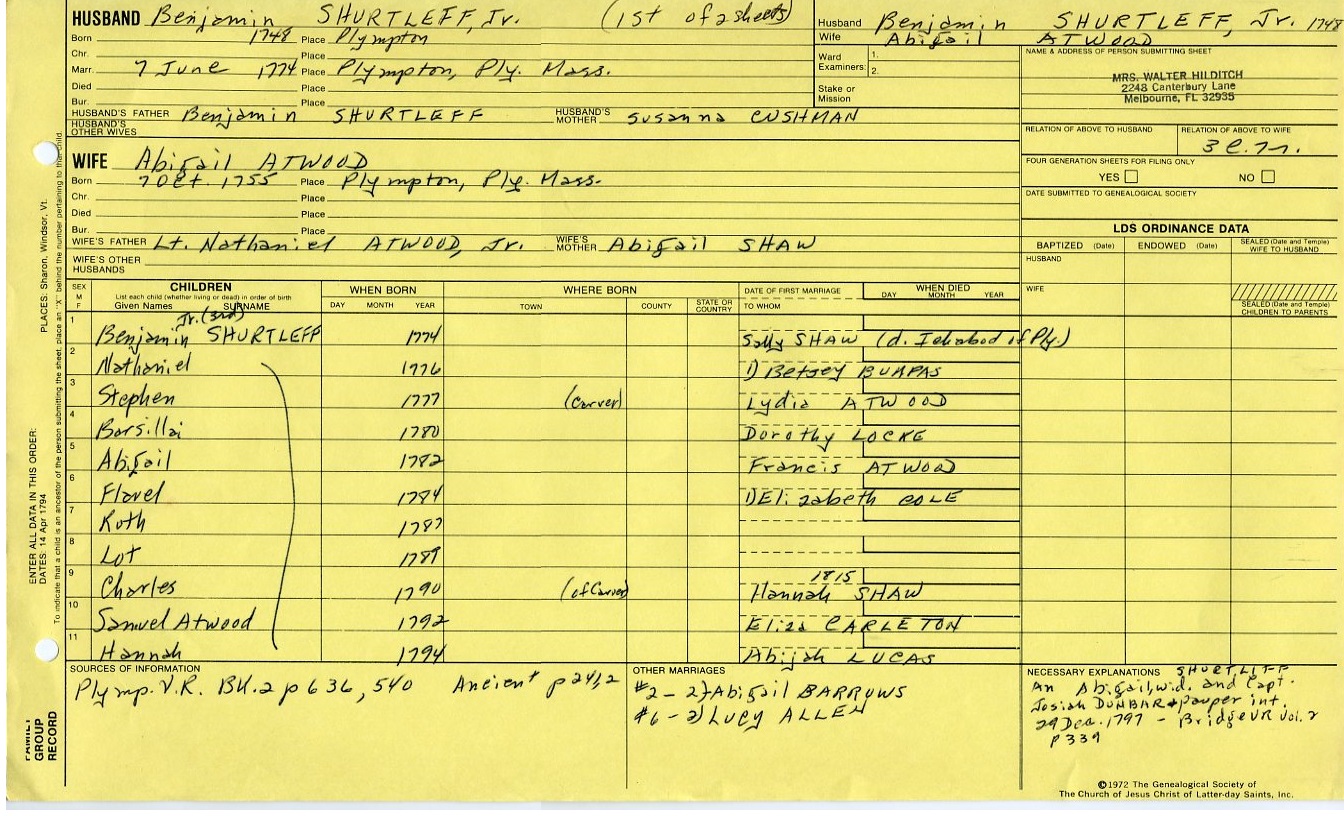 HUSBAND Benjamin SHURTLEFF, Jr. (1st of 2 sheets)
Born 1748 Place Plympton
Chr. Place
Marr. 7 June 1774 Place Plympton, Ply. Mass.
Died Place
Bur. Place
HUSBAND'S FATHER Benjamin SHURTLEFF HUSBAND'S MOTHER Susanna CUSHMAN
HUSBAND'S OTHER WIVES
WIFE Abigail ATWOOD
Born 7 Oct. 1755 Place Plympton, Ply. Mass.
Chr. Place
Died Place
Bur. Place
WIFE'S FATHER Lt. Nathaniel ATWOOD, Jr. WIFE'S MOTHER Abigail SHAW
WIFE'S OTHER HUSBANDS
Husband Benjamin SHURTLEFF, Jr. 1748
Wife Abigail ATWOOD
Ward Examiners: 1.
2.
Stake or Mission
NAME & ADDRESS OF PERSON SUBMITTING SHEET
MRS. WALTER HILDITCH
2248 Canterbury Lane
Melbourne, FL 32935
RELATION OF ABOVE TO HUSBAND RELATION OF ABOVE TO WIFE
3 C. 7 r.
FOUR GENERATION SHEETS FOR FILING ONLY
YES NO
DATE SUBMITTED TO GENEALOGICAL SOCIETY
LDS ORDINANCE DATA
BAPTIZED (Date) ENDOWED (Date) SEALED (Date and Temple) WIFE TO HUSBAND
HUSBAND
WIFE
SEALED (Date and Temple) CHILDREN TO PARENTS
SEX M F
CHILDREN
List each child (whether living or dead) in order of birth
Given Names SURNAME
WHEN BORN
DAY MONTH YEAR
WHERE BORN
TOWN COUNTY STATE OR COUNTRY
DATE OF FIRST MARRIAGE
TO WHOM
WHEN DIED
DAY MONTH YEAR
Jr. (3rd)
1 Benjamin SHURTLEFF 1774 Sally SHAW (d. Ichabod of Ply.)
2 Nathaniel 1776 1) Betsey BUMPAS
3 Stephen 1777 (Carver) Lydia ATWOOD
4 Barsillai 1780 Dorothy LOCKE
5 Abigail 1782 Francis ATWOOD
6 Flavel 1784 1) Elizabeth COLE
7 Ruth 1787
8 Lot 1789
9 Charles 1790 (of Carver) 1815 Hannah SHAW
10 Samuel Atwood 1792 Eliza CARLETON
11 Hannah 1794 Abijah LUCAS
SOURCES OF INFORMATION
Plymp. V.R. BK. 2 p 636, 540 Ancient p 241, 2
OTHER MARRIAGES
#2 - 2) Abigail BARROWS
#6 - 2) Lucy ALLEN
NECESSARY EXPLANATIONS SHURTLIFF
An Abigail, wid. and Capt.
Josiah DUNBAR pauper int.
29 Dec. 1797 - Bridge VR Vol. 2
p 339
©1972 The Genealogical Society of
The Church of Jesus Christ of Latter-day Saints, Inc.
ENTER ALL DATA IN THIS ORDER:
DATES: 14 Apr 1794
PLACES: Sharon, Windsor, Vt.
To indicate that a child is an ancestor of the person submitting the sheet, place an "X" behind the number pertaining to that child.
FAMILY GROUP RECORD